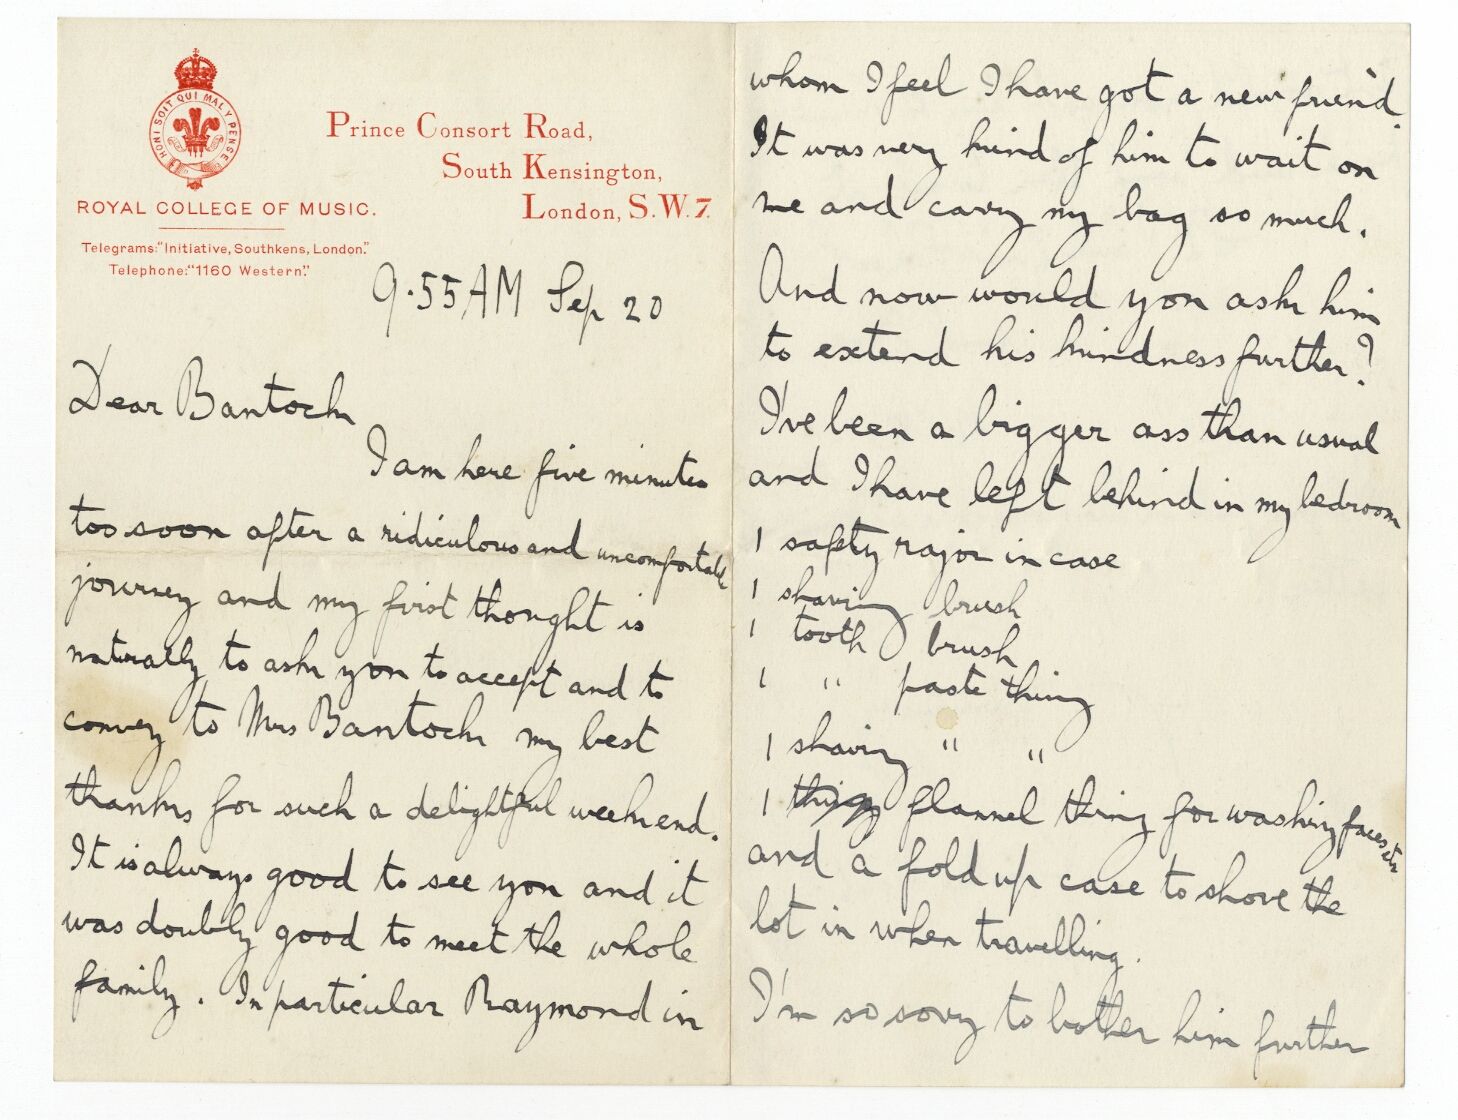 HONI SOIT QUI MAL Y PENSE
ROYAL COLLEGE OF MUSIC.
Telegrams:"Initiative, Southkens, London."
Telephone:"1160 Western."
Prince Consort Road,
South Kensington,
London, S.W.7.
9.55AM Sep 20
Dear Bantock
I am here five minutes
too soon after a ridiculous and uncomfortable
journey and my first thought is
naturally to ask you to accept and to
convey to Mrs Bantock my best
thanks for such a delightful weekend.
It is always good to see you and it
was doubly good to meet the whole
family. In particular Raymond in
whom I feel I have got a new friend.
It was very kind of him to wait on
me and carry my bag so much.
And now would you ask him
to extend his kindness further?
I've been a bigger ass than usual
and I have left behind in my bedroom
1 safety rajor in case
1 shaving brush
1 tooth brush
1 " paste thing
1 shaving " "
1 things flannel thing for washing faces etc
and a fold up case to shove the
lot in when travelling.
I'm so sorry to bother him further